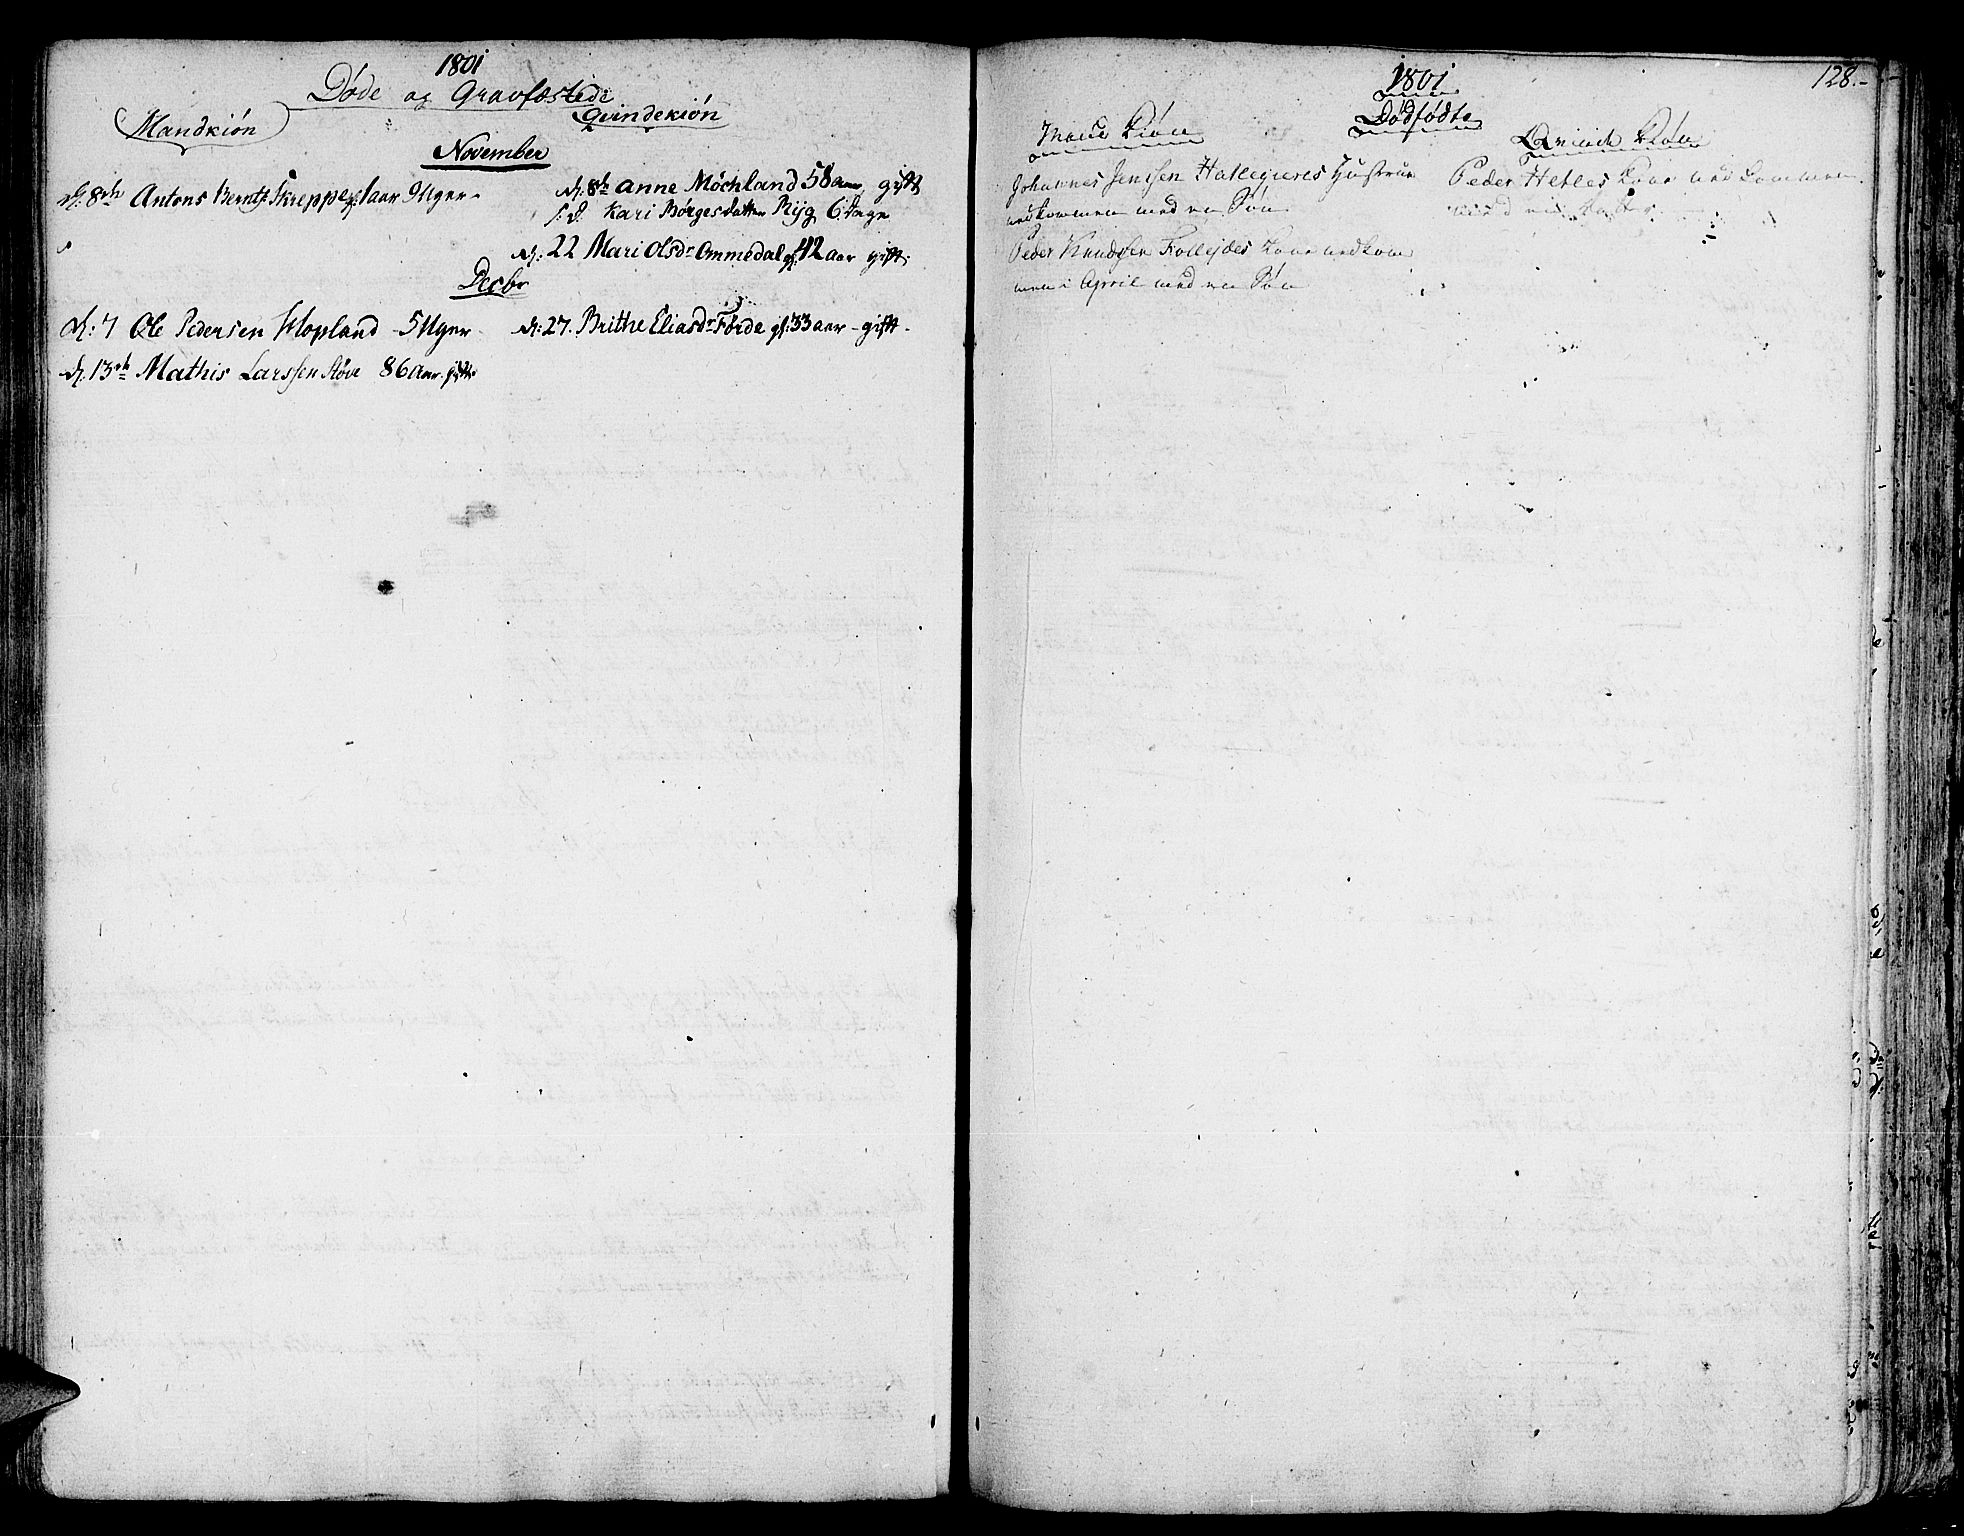 1801
Døde og Gravfæstede
Mandkiøn
Qvindekiøn
November
d: 8de Antons Bernts: Skreppe gl: 1 aar 9 Uger
d: 8de Anne Møchland 58 aar, gift
s: d. Kari Børgesdatter Ryg 6 Dage
d: 22 Mari Olsdr Ommedal gl: 42 aar gift.
Decbr
d: 7 Ole Pedersen Hopland 5 Uger
d. 13de Mathis Larssen Støve 86 aar. gift
d: 27. Brithe Eliasdr Førde gl: 33 aar - gift -
128.
1801
Dødfødte
Mand Kiøn
Johannes Jensen Hustrue
nedkommen med en Søn
Peder Knudsen Kone nedkom
men i April med en Søn
Qvinde Kiøn
Peder Hetles Kone nedkommen
med en Datter